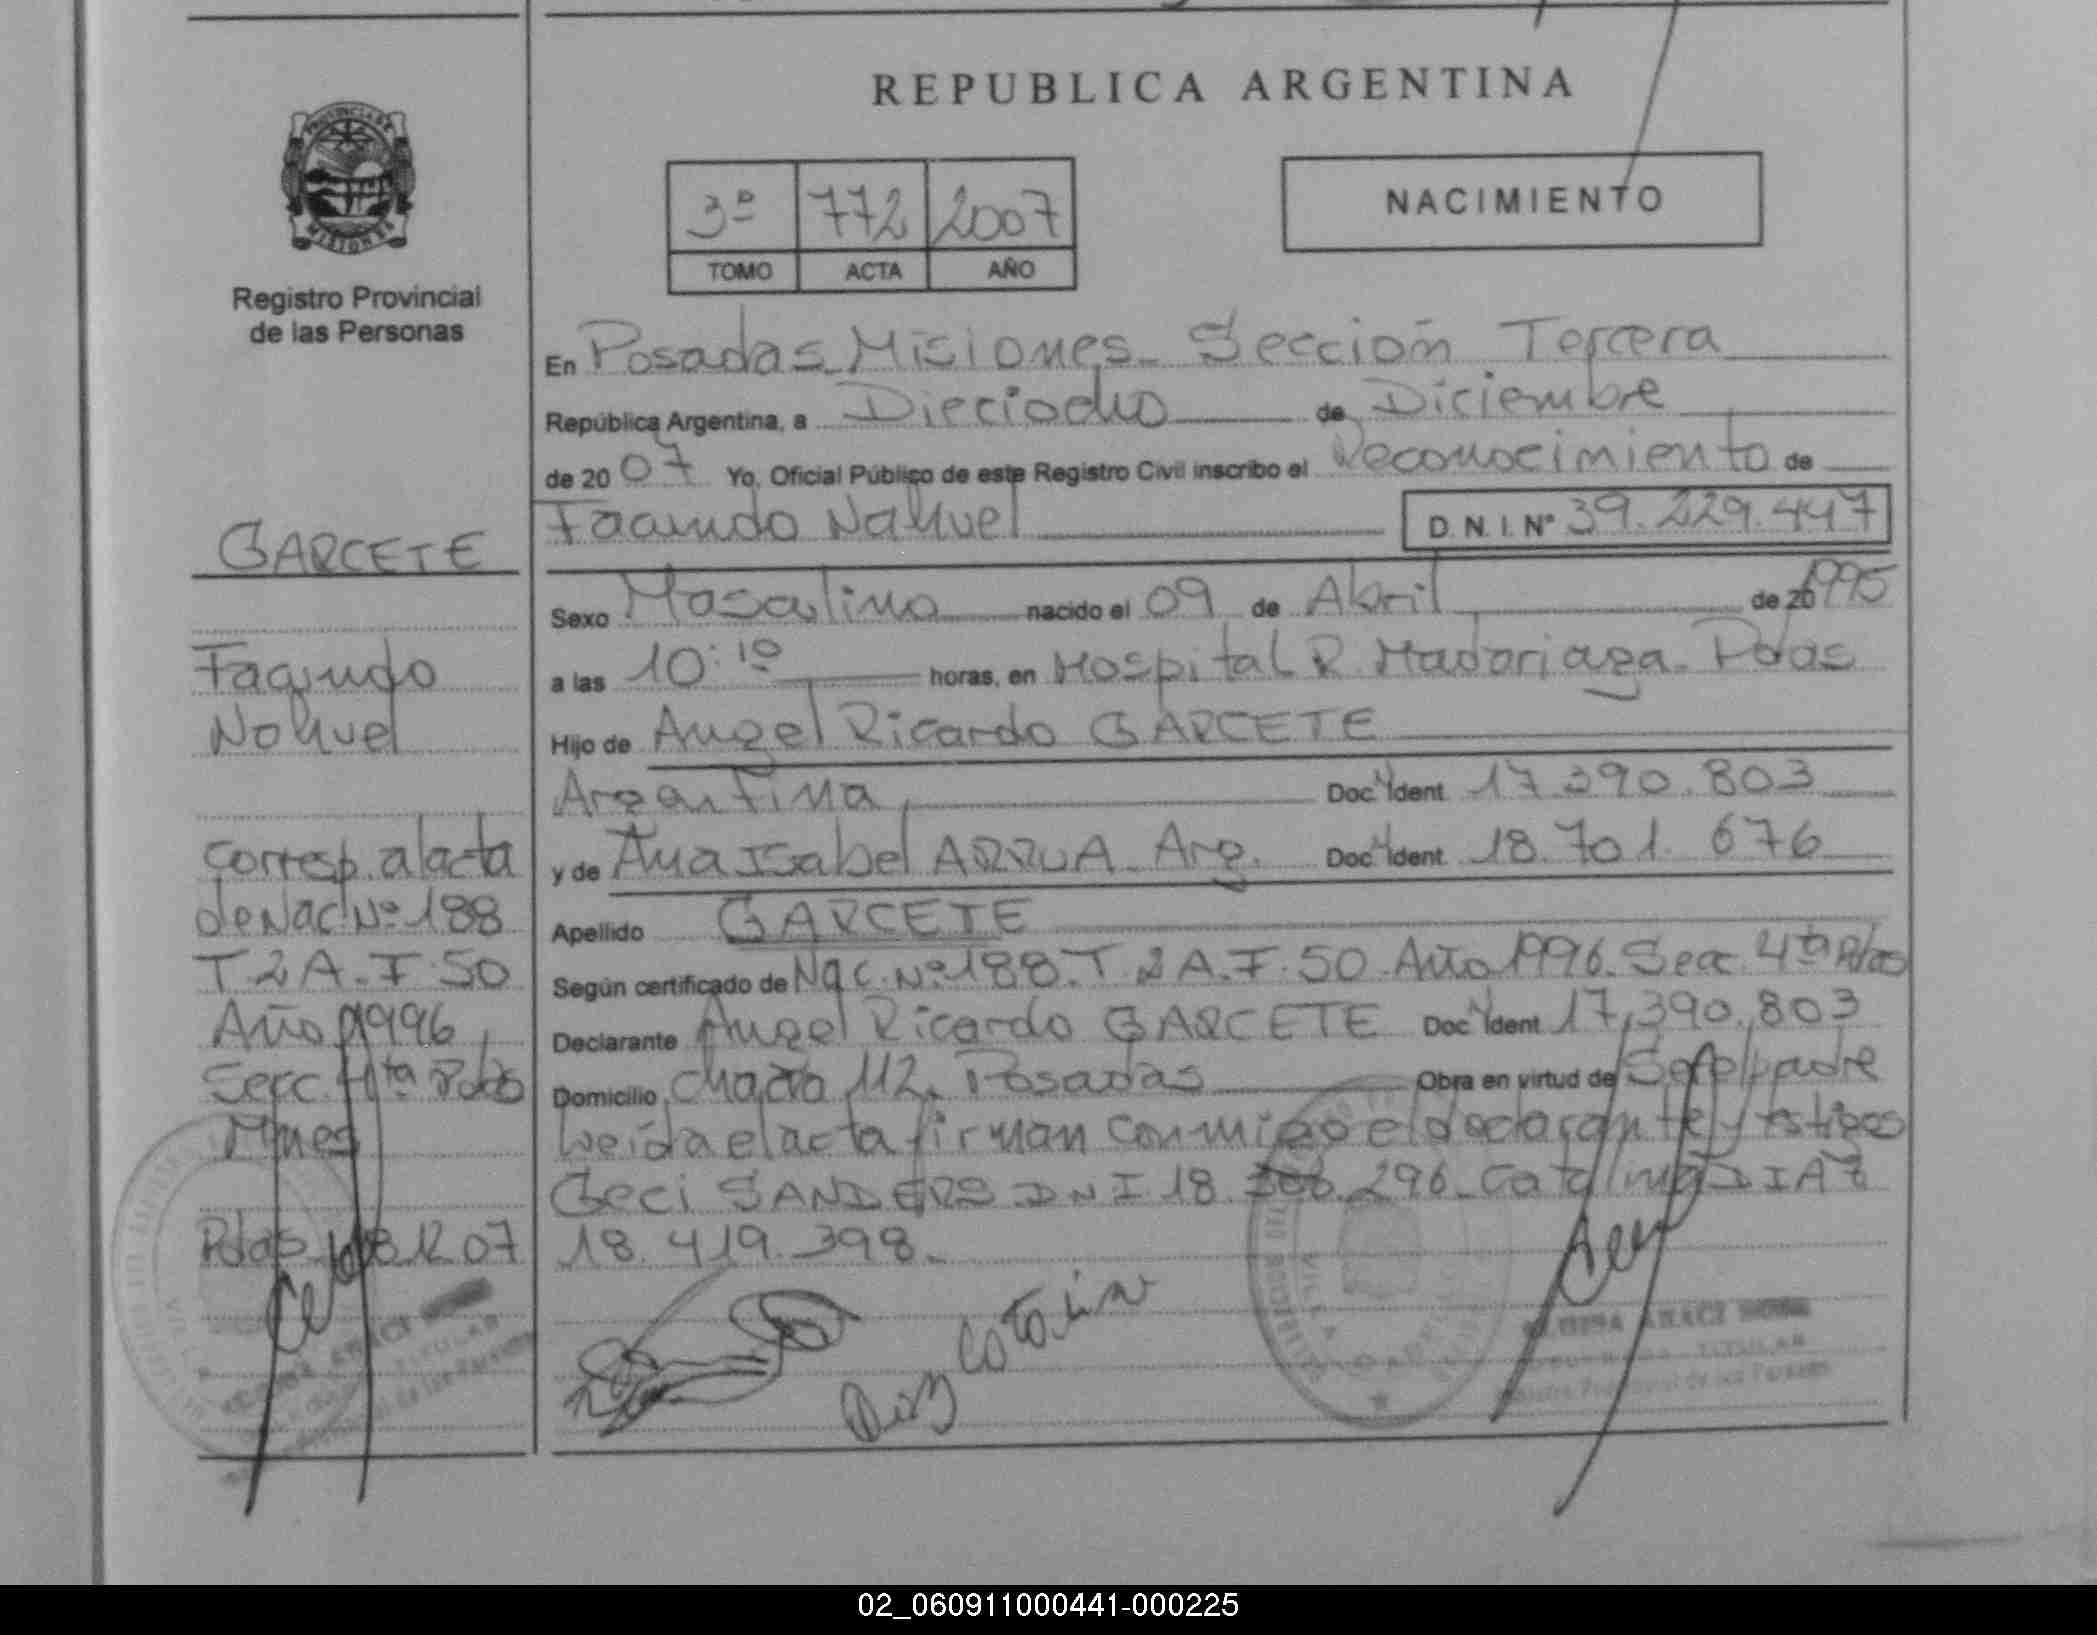 REPUBLICA ARGENTINA
PROVINCIA DE
MISIONES
Registro Provincial
de las Personas
3º 772 2007
TOMO ACTA AÑO
NACIMIENTO
En Posadas Misiones. Sección Tercera
República Argentina, a Dieciocho de Diciembre
de 2007 Yo, Oficial Público de este Registro Civil inscribo el Reconocimiento de
Facundo Nahuel D.N.I. Nº 39.229.447
Sexo Masculino nacido el 09 de Abril de 20 1995
a las 10:10 horas, en Hospital R. Madariaga. Pdas
Hijo de Angel Ricardo GARCETE
Argentina Doc. Ident 17.390.803
y de Ana Isabel ARRUA. Arg. Doc. Ident 18.701.676
Apellido GARCETE
Según certificado de Nac. Nº 188. T. 2A. F. 50. Año 1996. Secc. 4ta Pdas
Declarante Angel Ricardo GARCETE Doc Ident 17,390,803
Domicilio Chacra 112, Posadas Obra en virtud de Ser el padre
Leída el acta firman conmigo el declarante y testigos
Geci SANDERS DNI 18. 296. Catalina DIAZ
18.419.398.
Diaz Catalina
GARCETE
Facundo
Nahuel
Corresp. al acta
de Nac. Nº 188
T. 2A. F. 50
Año 1996
Secc. 4ta Pdas
Mnes
Pdas 18.12.07
ARACI
TITULAR
Registro Provincial de las Personas
02_060911000441-000225